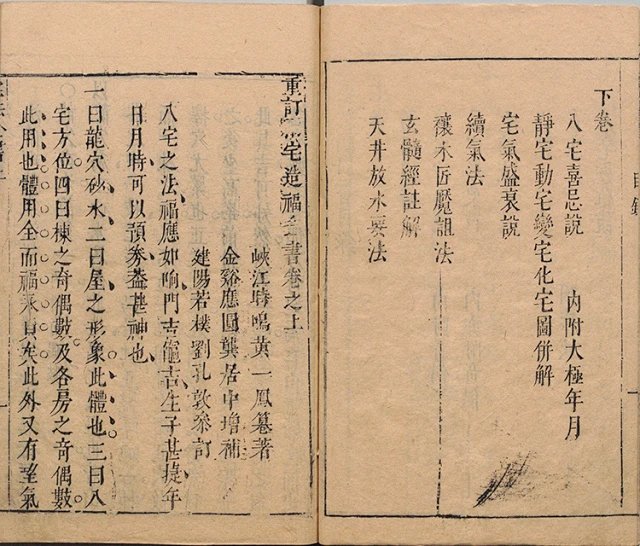 下卷
八宅喜忌説 内附大極年月
靜宅動宅變宅化宅圖併解
宅氣盛衰説
續氣法
禳木匠魘詛法
玄髓經註解
天井放水要法
重訂宅造福全書卷之上
峽江時鳴黄一鳳纂著
金谿應圓龔居中增補
建陽若樸劉孔敦叅訂
八宅之法福應如响門吉竈吉生子甚捷年
日月時可以預叅葢甚神也
一曰龍穴砂水二曰屋之形象此體也三曰八
宅方位四曰棟之奇偶數及各房之奇偶數
此用也體用全而福永具矣此外又有至氣